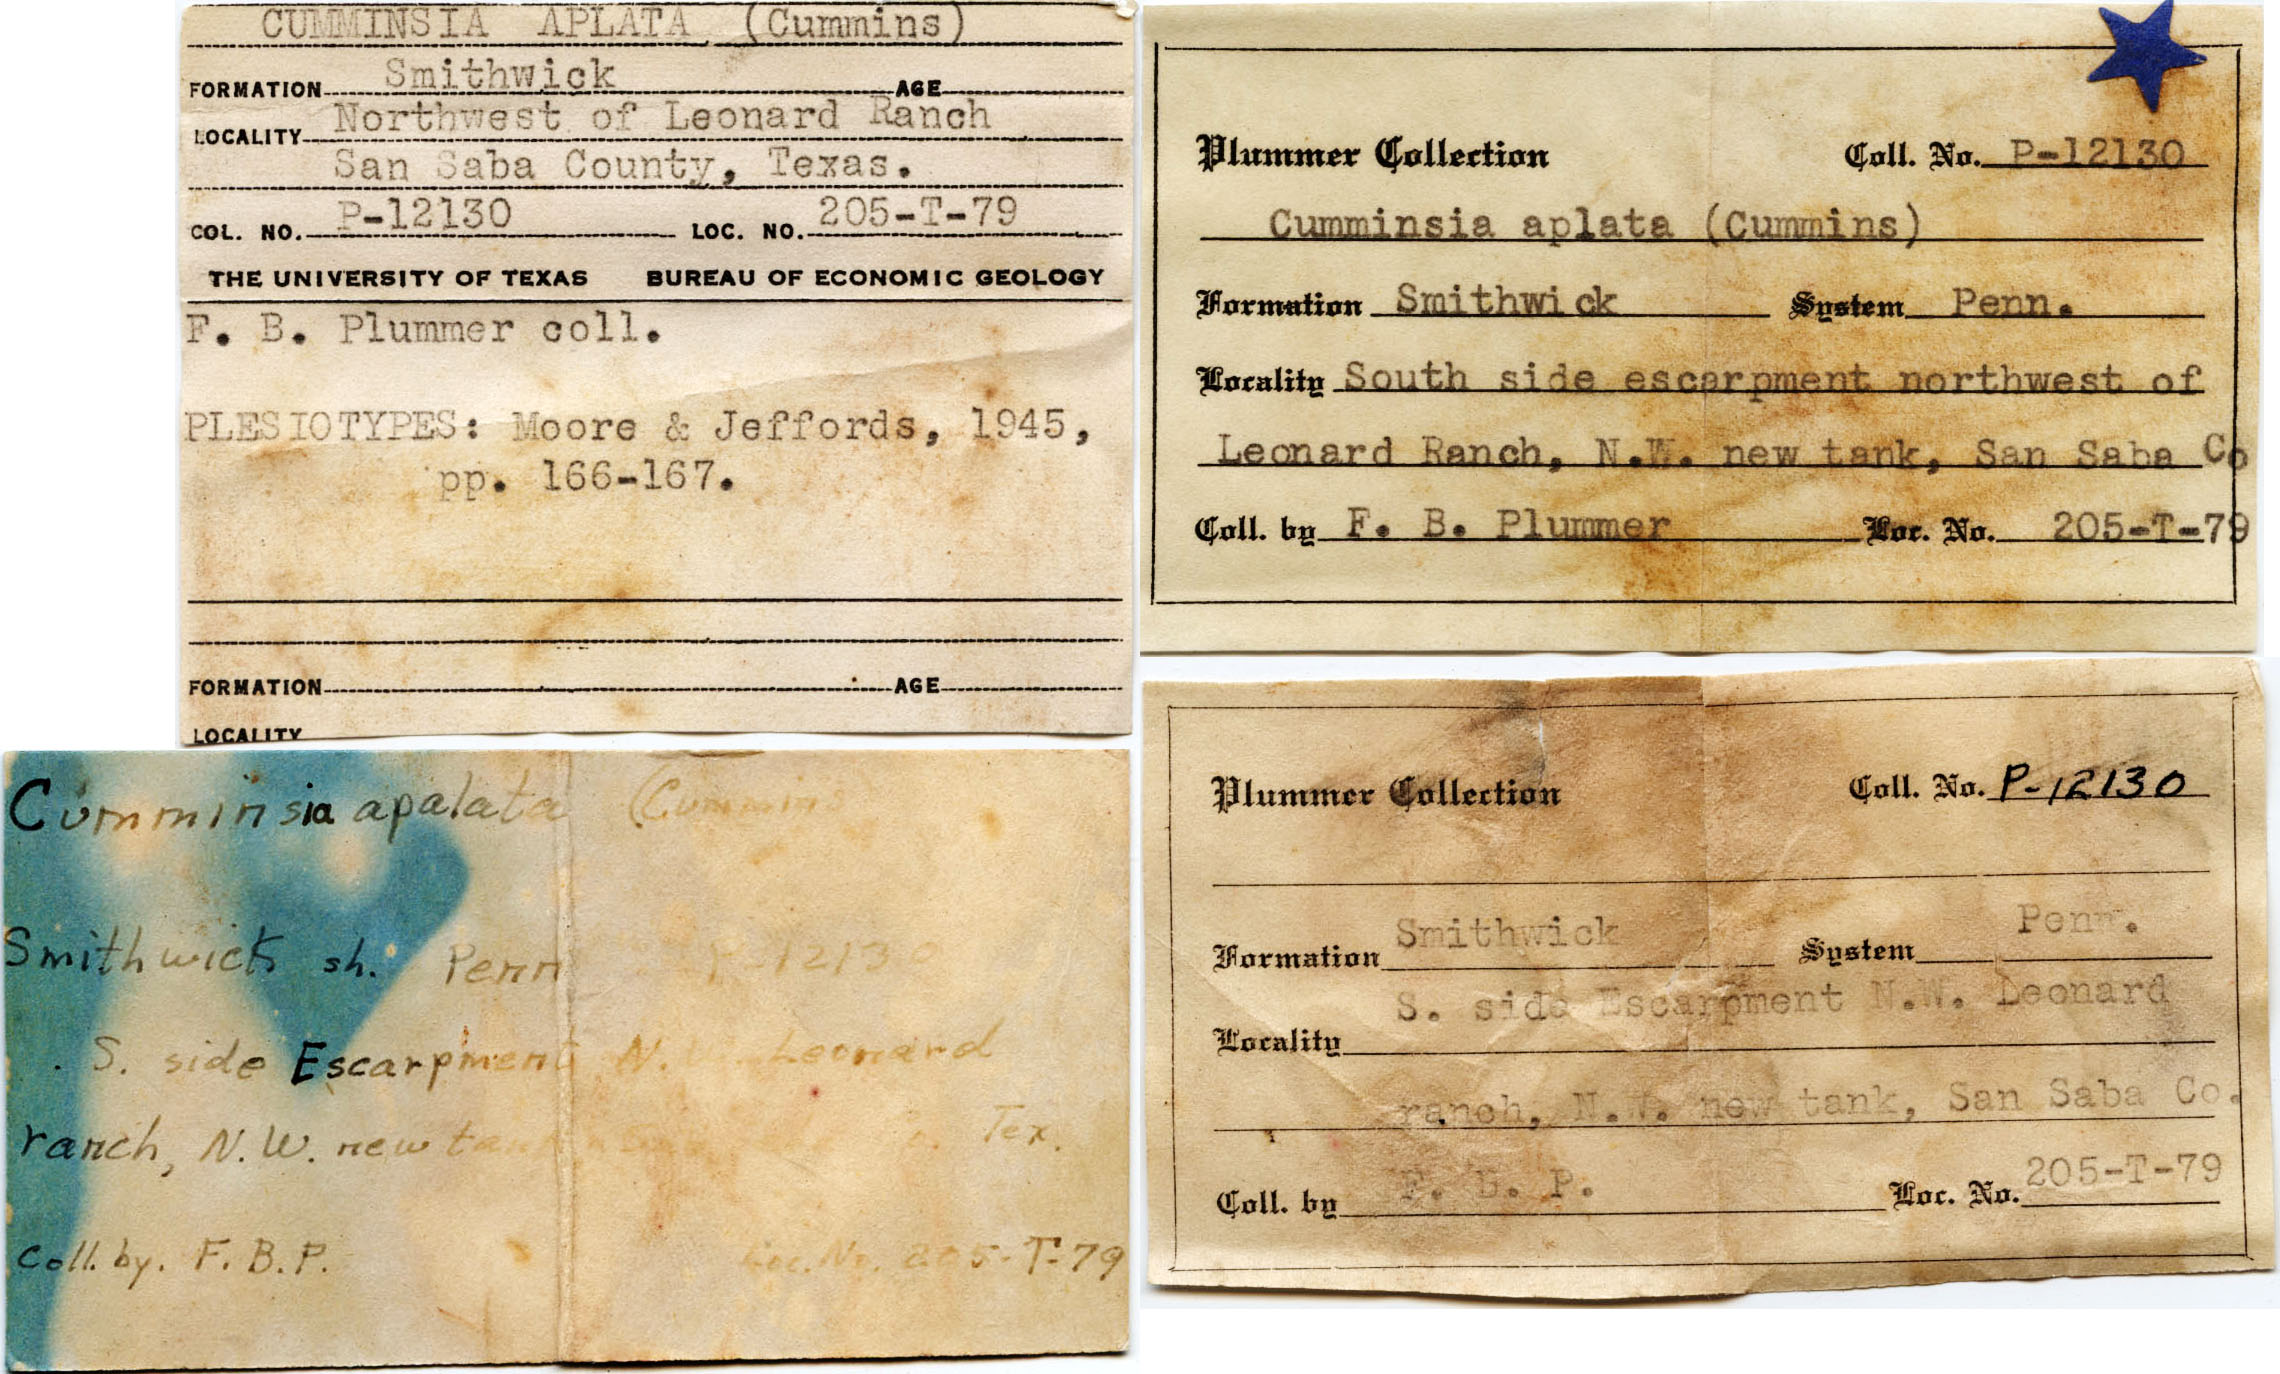 CUMMINSIA APLATA (Cummins)
FORMATION Smithwick AGE
LOCALITY Northwest of Leonard Ranch
San Saba County, Texas.
COL. NO. P-12130 LOC. NO. 205-T-79
THE UNIVERSITY OF TEXAS BUREAU OF ECONOMIC GEOLOGY
F. B. Plummer coll.
PLESIOTYPES: Moore & Jeffords, 1945,
pp. 166-167.
FORMATION AGE
LOCALITY
Plummer Collection Coll. No. P-12130
Cumminsia aplata (Cummins)
Formation Smithwick System Penn.
Locality South side escarpment northwest of
Leonard Ranch, N.W. new tank, San Saba Co
Coll. by F. B. Plummer Loc. No. 205-T-79
Cumminsia apalata (Cummins
Smithwick sh. Penn P-12130
S. side Escarpment N. Leonard
ranch, N.W. new Tex.
Coll. by. F.B.P. Loc. No. 205-T-79
Plummer Collection Coll. No. P-12130
Formation Smithwick System Penn.
S. side Escarpment N.W. Leonard
Locality
ranch, N.W. new tank, San Saba Co.
Coll. by F. B. P. Loc. No. 205-T-79